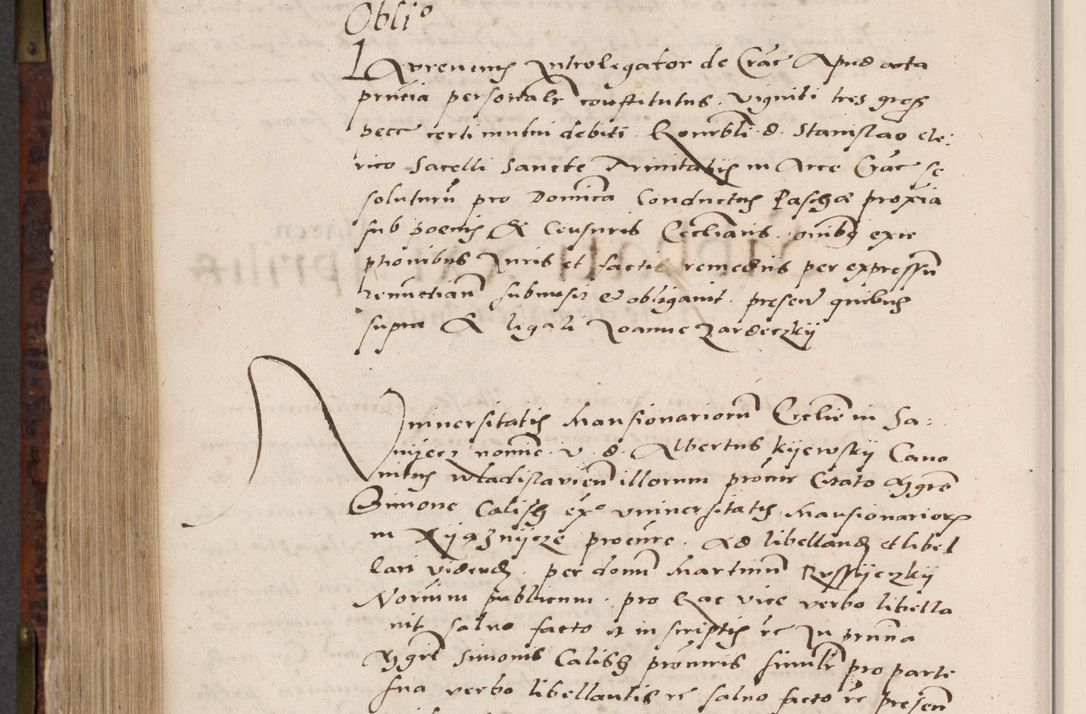 Obli⁰
Laurencius Introligator de Crac Apud acta
pñtia personalr constitutus viginti tres gros
pecc certi mutui debiti honorbli d. Stanislao cle-
rico Sacelli Sancte Trinitatis in Arce Crac se
soluturũ pro Dominica Conductus Paschæ proxia
sub poenis & Censuris Ecclians. omibus exce
ptionibus Juris et facti remediis per expressũ
renuncian submisit et obligavit. presen quibus
supra & ligali Joanne Zardeczkij
Universitatis Mansionariorũ Ecclie in Sa-
nijecz nomine v. d. Albertus Kijewskij Cano
nicus Wladislavien illorum procur Citato Mgrõ
Simone Calish ex⁰ universitatis Mansionariorum
in Xijaznijcze procure. Ad libelland et libel
lari vidend per domũ Martinum
Notarium publicum pro hac vice verbo libella
vit salvo facto et in scriptis rc In prnña
Mgri Simonis Calish procuris similr pro parte
sua verbo libellantis rc salvo facto rc presen